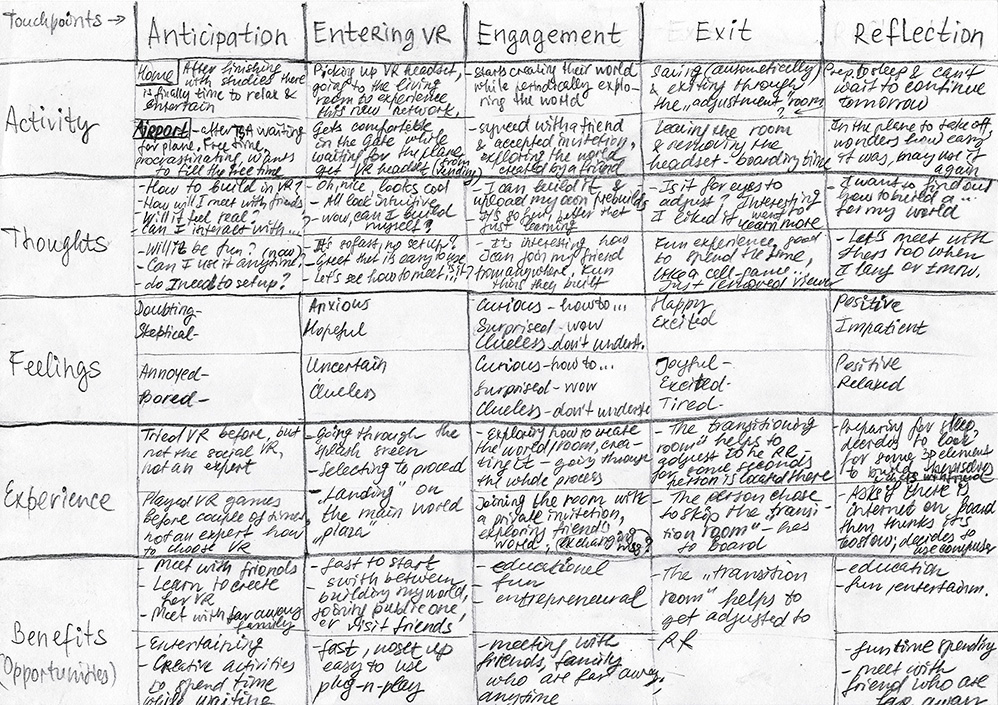 Touchpoints →
Anticipation
Entering VR
Engagement
Exit
Reflection
Activity
Home After finishing
with studies there
is finally time to relax &
entertain
Picking up VR headset,
going to the living
room to experience
this new network,
- starts creating their world
while periodically explo-
ring the world
Saving (automatically)
& exiting through
the „adjustment room
Prep. to sleep & can't
wait to continue
tomorrow
Airport - after TSA waiting
for plane, Free time,
procrastinating, wants
to fill the free time
Gets comfortable
in the gate while
waiting for the plane
get VR headset (from
vending)
- synced with a friend
& accepted invitation,
exploring the world
created by a friend
Leaving the room
& removing the
headset - boarding time
In the plane to take off,
wonders how easy
it was, may not it
again
Thoughts
- How to build in VR?
- How will I meet with friends
- Will it feel real?
- Can I interact with...?
- Oh, nice, looks cool
- All look intuitive
- wow, can I build
myself?
- I can build it, &
upload my own prebuilds
- It's so fun, better that
just learning
- Is it for eyes to
adjust? Interesting
I liked it, want to
learn more
- I want to find out
how to build a...
for my world
- Will it be fun? (now)
- Can I use it anytime?
- do I need to setup?
- It's so fast, no setup?
- Great that is easy to use
- Let's see how to meet...?
- It's interesting, how
I can join my friend
from anywhere,
this they built
Fun experience, good
to spend the time,
like a cell-game...
Just removed viewer
- Let's meet with
them too when
I
Feelings
Doubting-
Skeptical-
Anxious
Hopeful
Curious - how to...
Surprised - wow
Clueless - don't underst.
Happy
Excited
Positive
Impatient
Annoyed-
Bored-
Uncertain
Clueless
Curious - how to...
Surprised - wow
Clueless - don't underst
Joyful-
Excited-
Tired-
Positive
Relaxed
Experience
Tried VR before, but
not the social VR,
not an expert
- Going through the
splash sreen
- Selecting to proceed
- Exploring how to create
the world/room, crea-
ting it - going through
the whole process
- The transitioning
room" helps to
adjust to the RR
for some seconds
- Preparing for sleep,
decides to look
for some 3D element
to build
Played VR games
before couple of times,
not an expert how
to choose VR
- „Landing" on
the main world
„plaza"
Joining the room with
a private invitation,
exploring friends
world,
person is board there
- The person chose
to skip the „transi-
tion room" - has
to board
- Asks if there is
internet on board
then thinks it's
too slow, decides to
use computer
Benefits
(Opportunities)
- Meet with friends
- Learn to create
for VR
- Meet with far away
family
- fast to start
swith between
building my world,
joining public one,
or visit friends'
- educational
- fun
- entrepreneural
- The „transition
room" helps to
get adjusted to
RR
- education
- fun, entertainm.
- Entertaining
- Creative activities
to spend time
while waiting
- fast, no set up
easy to use
plug-n-play
- meeting with
friends, family
who are far away,
anytime
- fun time spending
- meet with
friend who are
far away